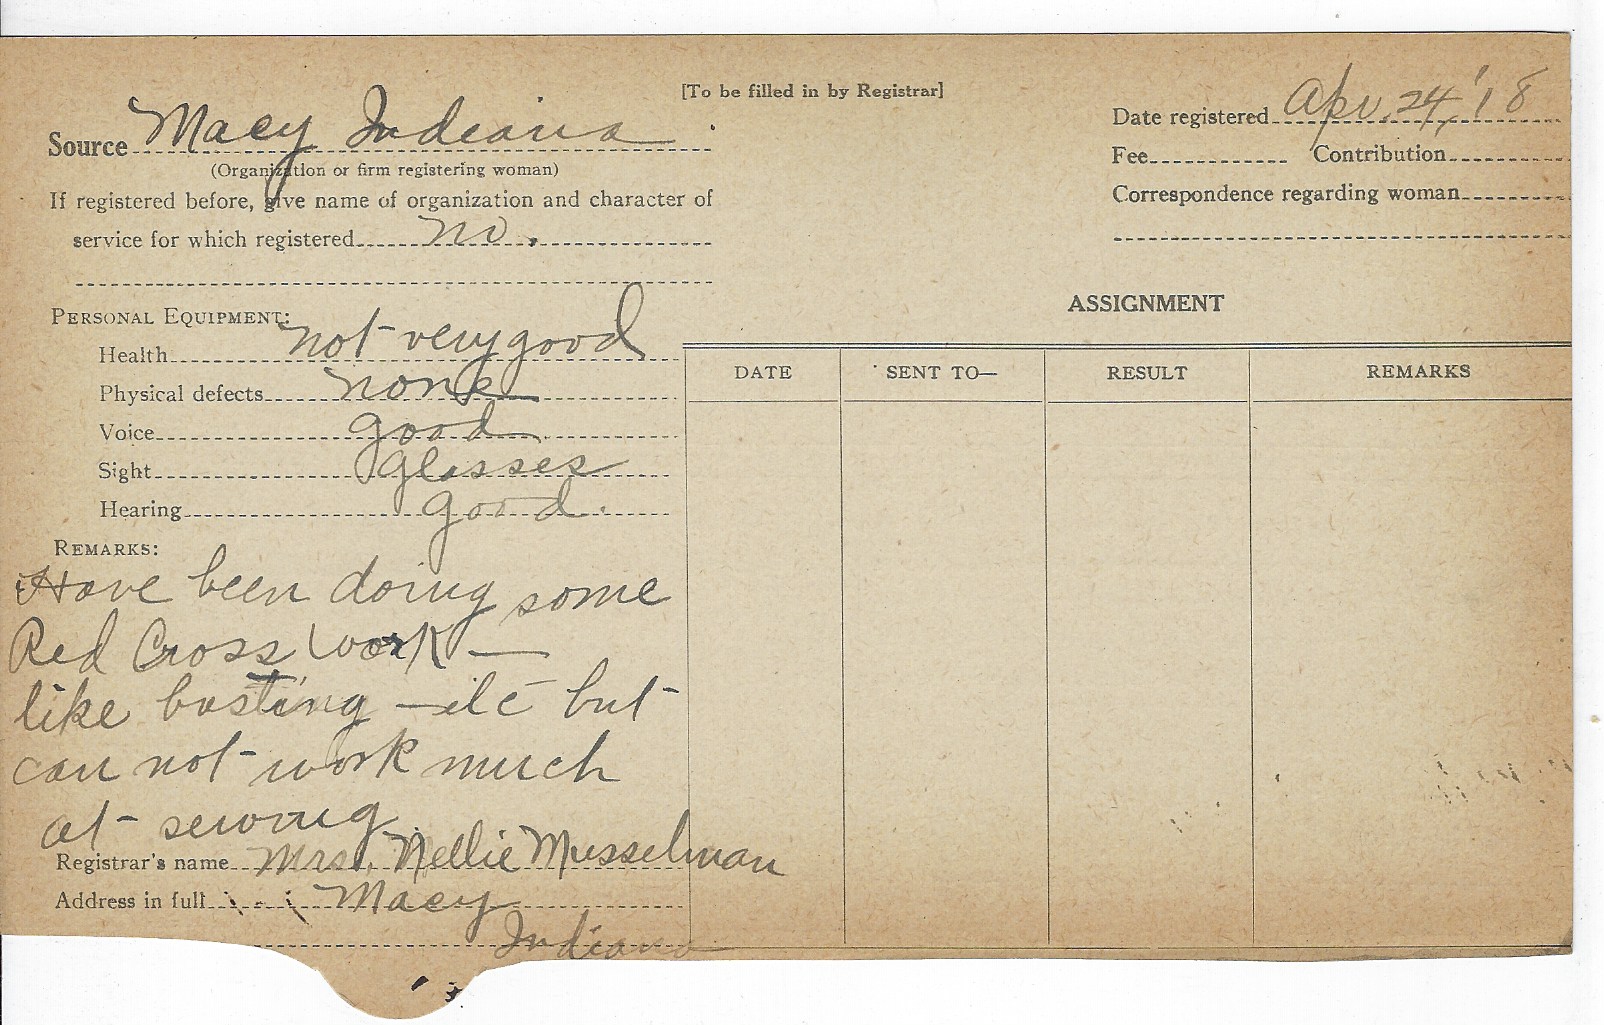 [To be filled in by Registrar]
Source Macy Indiana
(Organization or firm registering woman)
If registered before, give name of organization and character of
service for which registered no.
Date registered Apr. 24, '18
Fee Contribution
Correspondence regarding woman
PERSONAL EQUIPMENT:
Health not very good
Physical defects none
Voice good
Sight glasses
Hearing good.
REMARKS:
Have been doing some
Red Cross work —
like basting – etc but
can not work much
at sewing
Registrar's name Mrs. Nellie Musselman
Address in full Macy
Indiana
ASSIGNMENT
DATE SENT TO— RESULT REMARKS